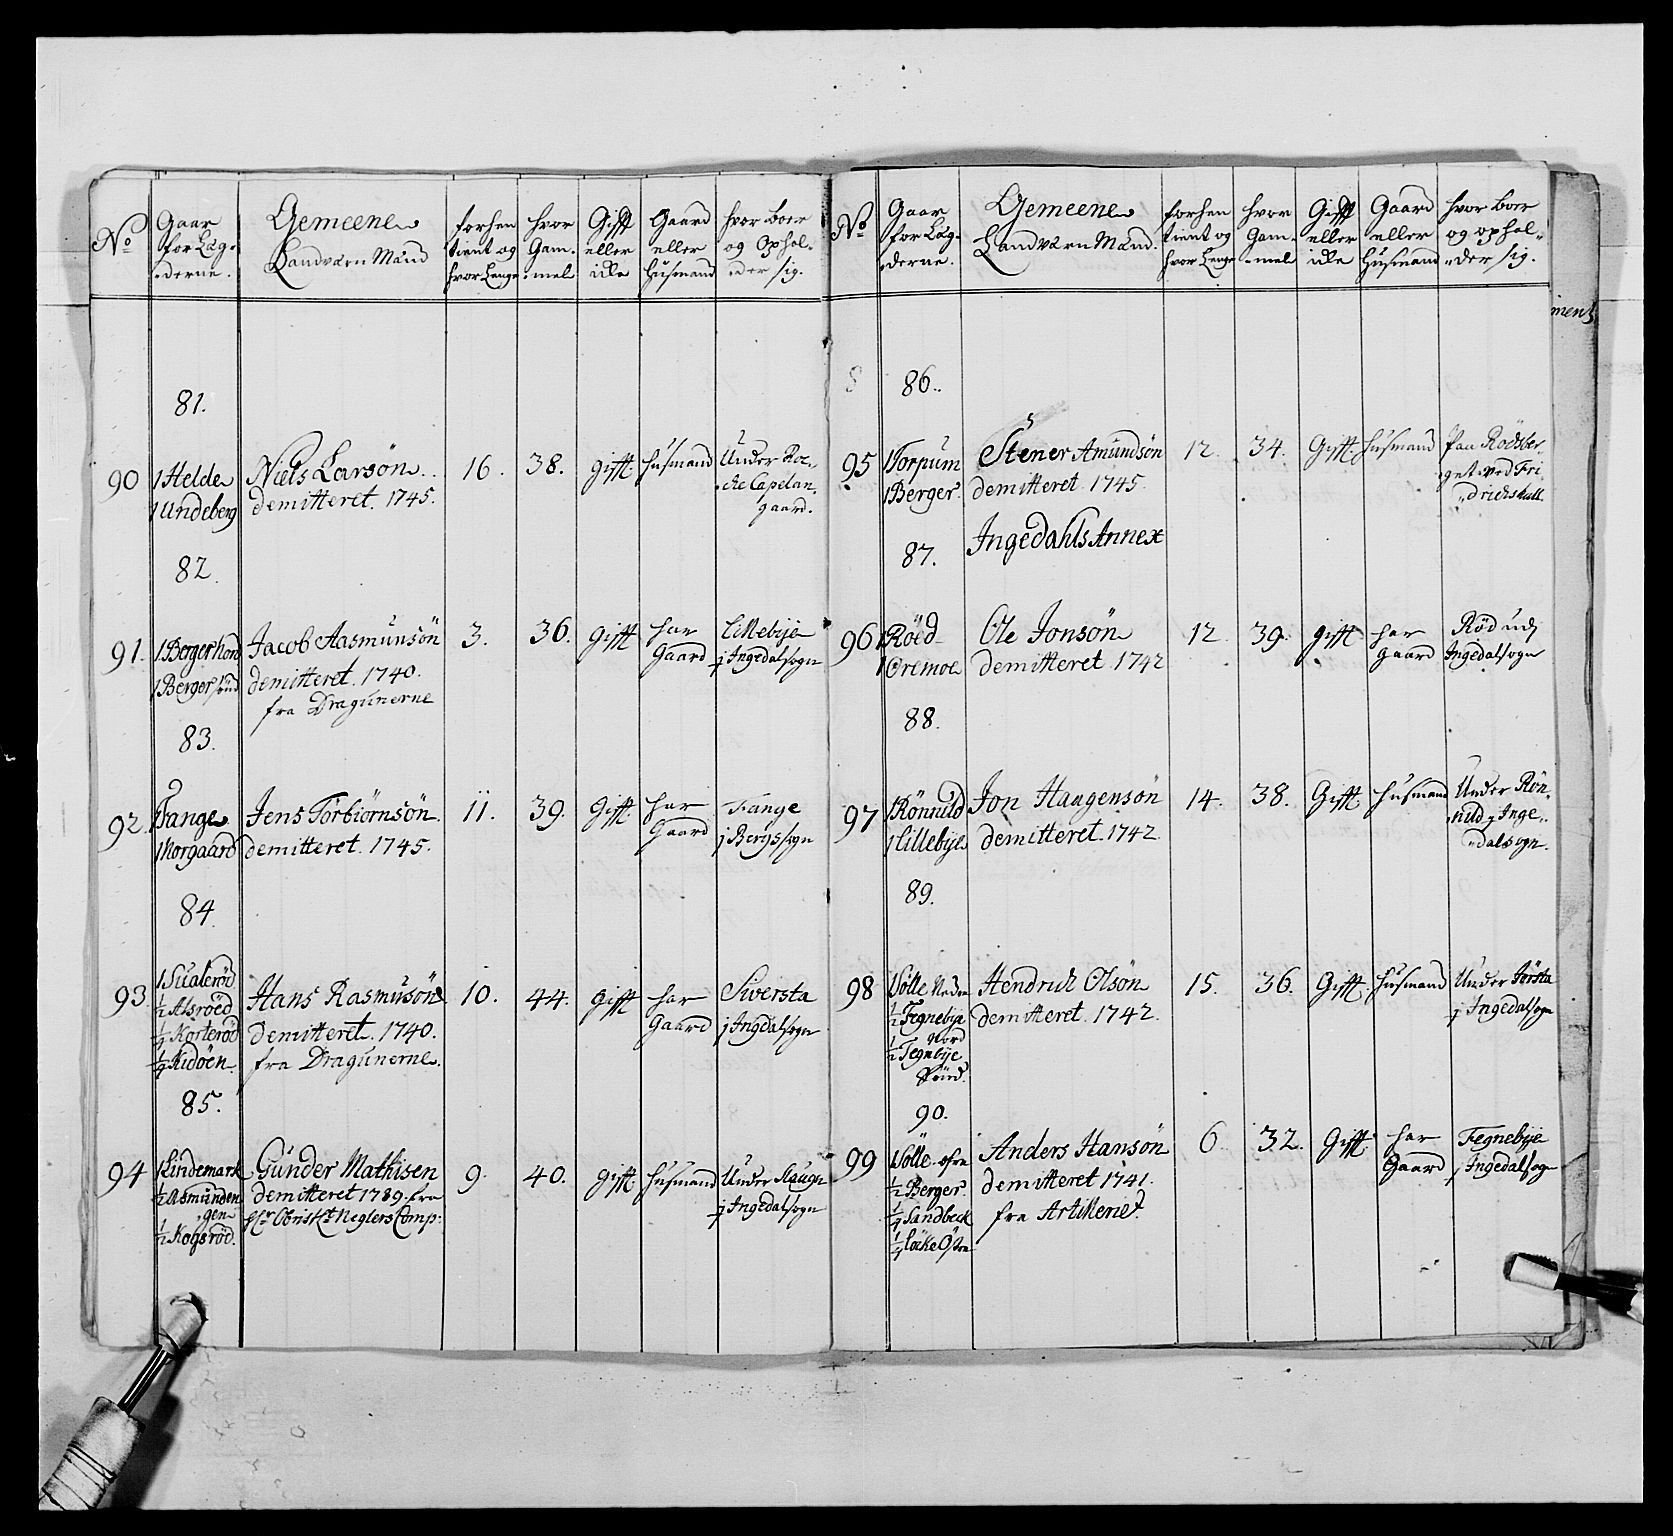 No
Gaar
for Læg-
derne.
Gemeene
Landværn Mænd
forhen
tient og
hvor Lenge
hvor
Gam-
mel
Gifft
eller
icke
Gaard
eller
Husmand
hvor boer
og ophol-
der sig.
81.
90
1 Helde
1 Undeberg
Niels Larsön
demitteret. 1745.
16.
38.
gifft
Husmand
Under
gaard.
82.
91.
1 Berger Nord
1 Berger Syd
Jacob Aasmunsön
demitteret. 1740.
fra Dragunerne
3.
36.
gifft
har
Gaard
Lillebye
j Ingedalsogn
83.
92.
1 Tange
1 Norgaard
Jens Torbiörnsön
demitteret. 1745.
11.
39.
Gifft
har
Gaard
Tange
j Bergssogn
84.
93
1 Sualeröd
1/2 Alsröed
1/4 Korteröd
1/4 Kidöen
Hans Rasmusön
demitteret. 1740.
fra Dragunerne.
10.
44.
gifft
har
Gaard
Siversta
j Ingdalsogn
85.
94
1 Lindemark
1/2 Asmunden
gen
1/2 Kogsröd.
Gunder Mathisen
demitteret 1739. fra
Neglers Comp:
9.
40.
gifft
Husmand
Under Haugn
j Ingedalsogn
No
Gaar
for Læg-
derne.
Gemeene
Landværn Mænd.
forhen
tient og
hvor Lenge
hvor
Gam-
mel
Gifft
eller
icke
Gaard
eller
Husmand
hvor boer
og ophol-
der sig.
86.
95
1 Torpum
1 Berger
Stener Amundsön
demitteret. 1745.
12.
34.
Gifft
Husmand
Paa Rödsber-
get ved Fri-
drichshall.
87.
Ingedahls Annex
96
1 Röed
1 Oremoe
Ole Jonsön
demitteret 1742
12
39.
gifft
har
gaard
Röd udj
Ingedalsogn
88.
97
1 Rönnild
1 Lillebye
Jon Haagensön
demitteret. 1742.
14.
38.
Gifft
Husmand
Under Rön-
nild j Inge-
dalsogn.
89.
98
1 Sölle Nedre
1/2 Tegnebye
Nord
1/2 Tegnbye
Synd.
Hendrich Olsön
demitteret. 1742.
15.
36.
Gifft
Husmand
Under Jörsta
j Ingedalsogn
90.
99
1 Sölle ofre
1/2 Berger
1/4 Sandbeck
1/4 Löcke Östre
Anders Hansön
demitteret 1741.
fra Artilleriet.
6.
32.
Gifft
har
Gaard
Tegnebye
j Ingedalsogn
ment